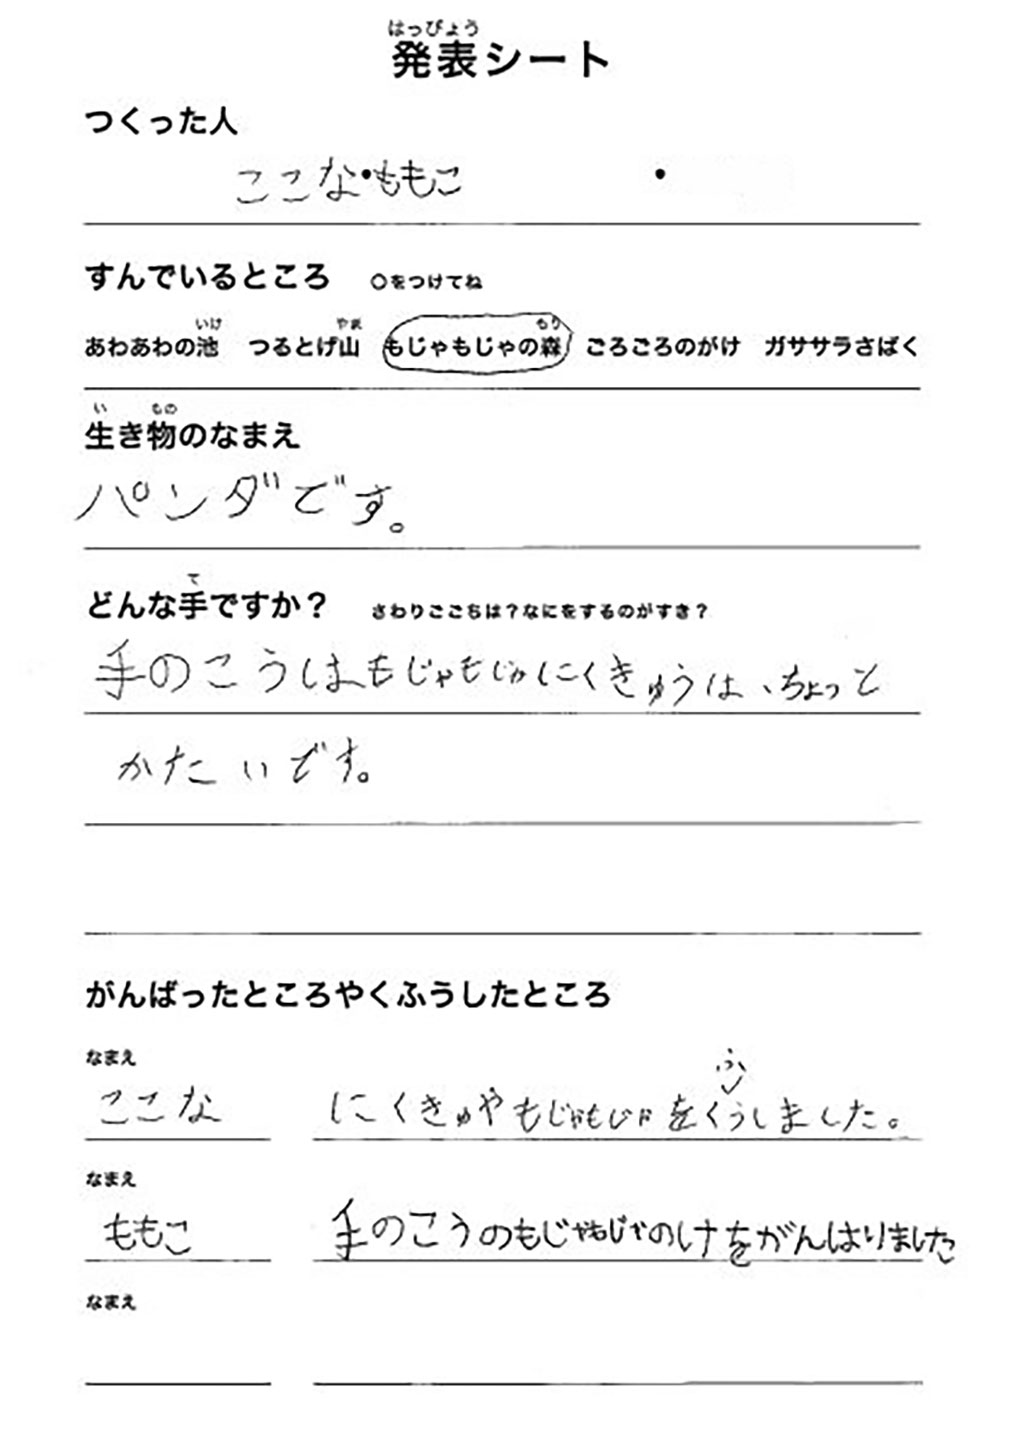 はっぴょう
発表シート
つくった人
ここな・ももこ ・
すんでいるところ ○をつけてね
いけ やま もり
あわあわの池 つるとげ山 もじゃもじゃの森 ごろごろのがけ ガササラさばく
い もの
生き物のなまえ
パンダです。
て
どんな手ですか? さわりごこちは?なにをするのがすき?
手のこうはもじゃもじゃにくきゅうは、ちょっと
かたいです。
がんばったところやくふうしたところ
なまえ
ふ
ここな にくきゅやもじゃもじゃをくうしました。
なまえ
ももこ 手のこうのもじゃもじゃのけをがんはりました
なまえ